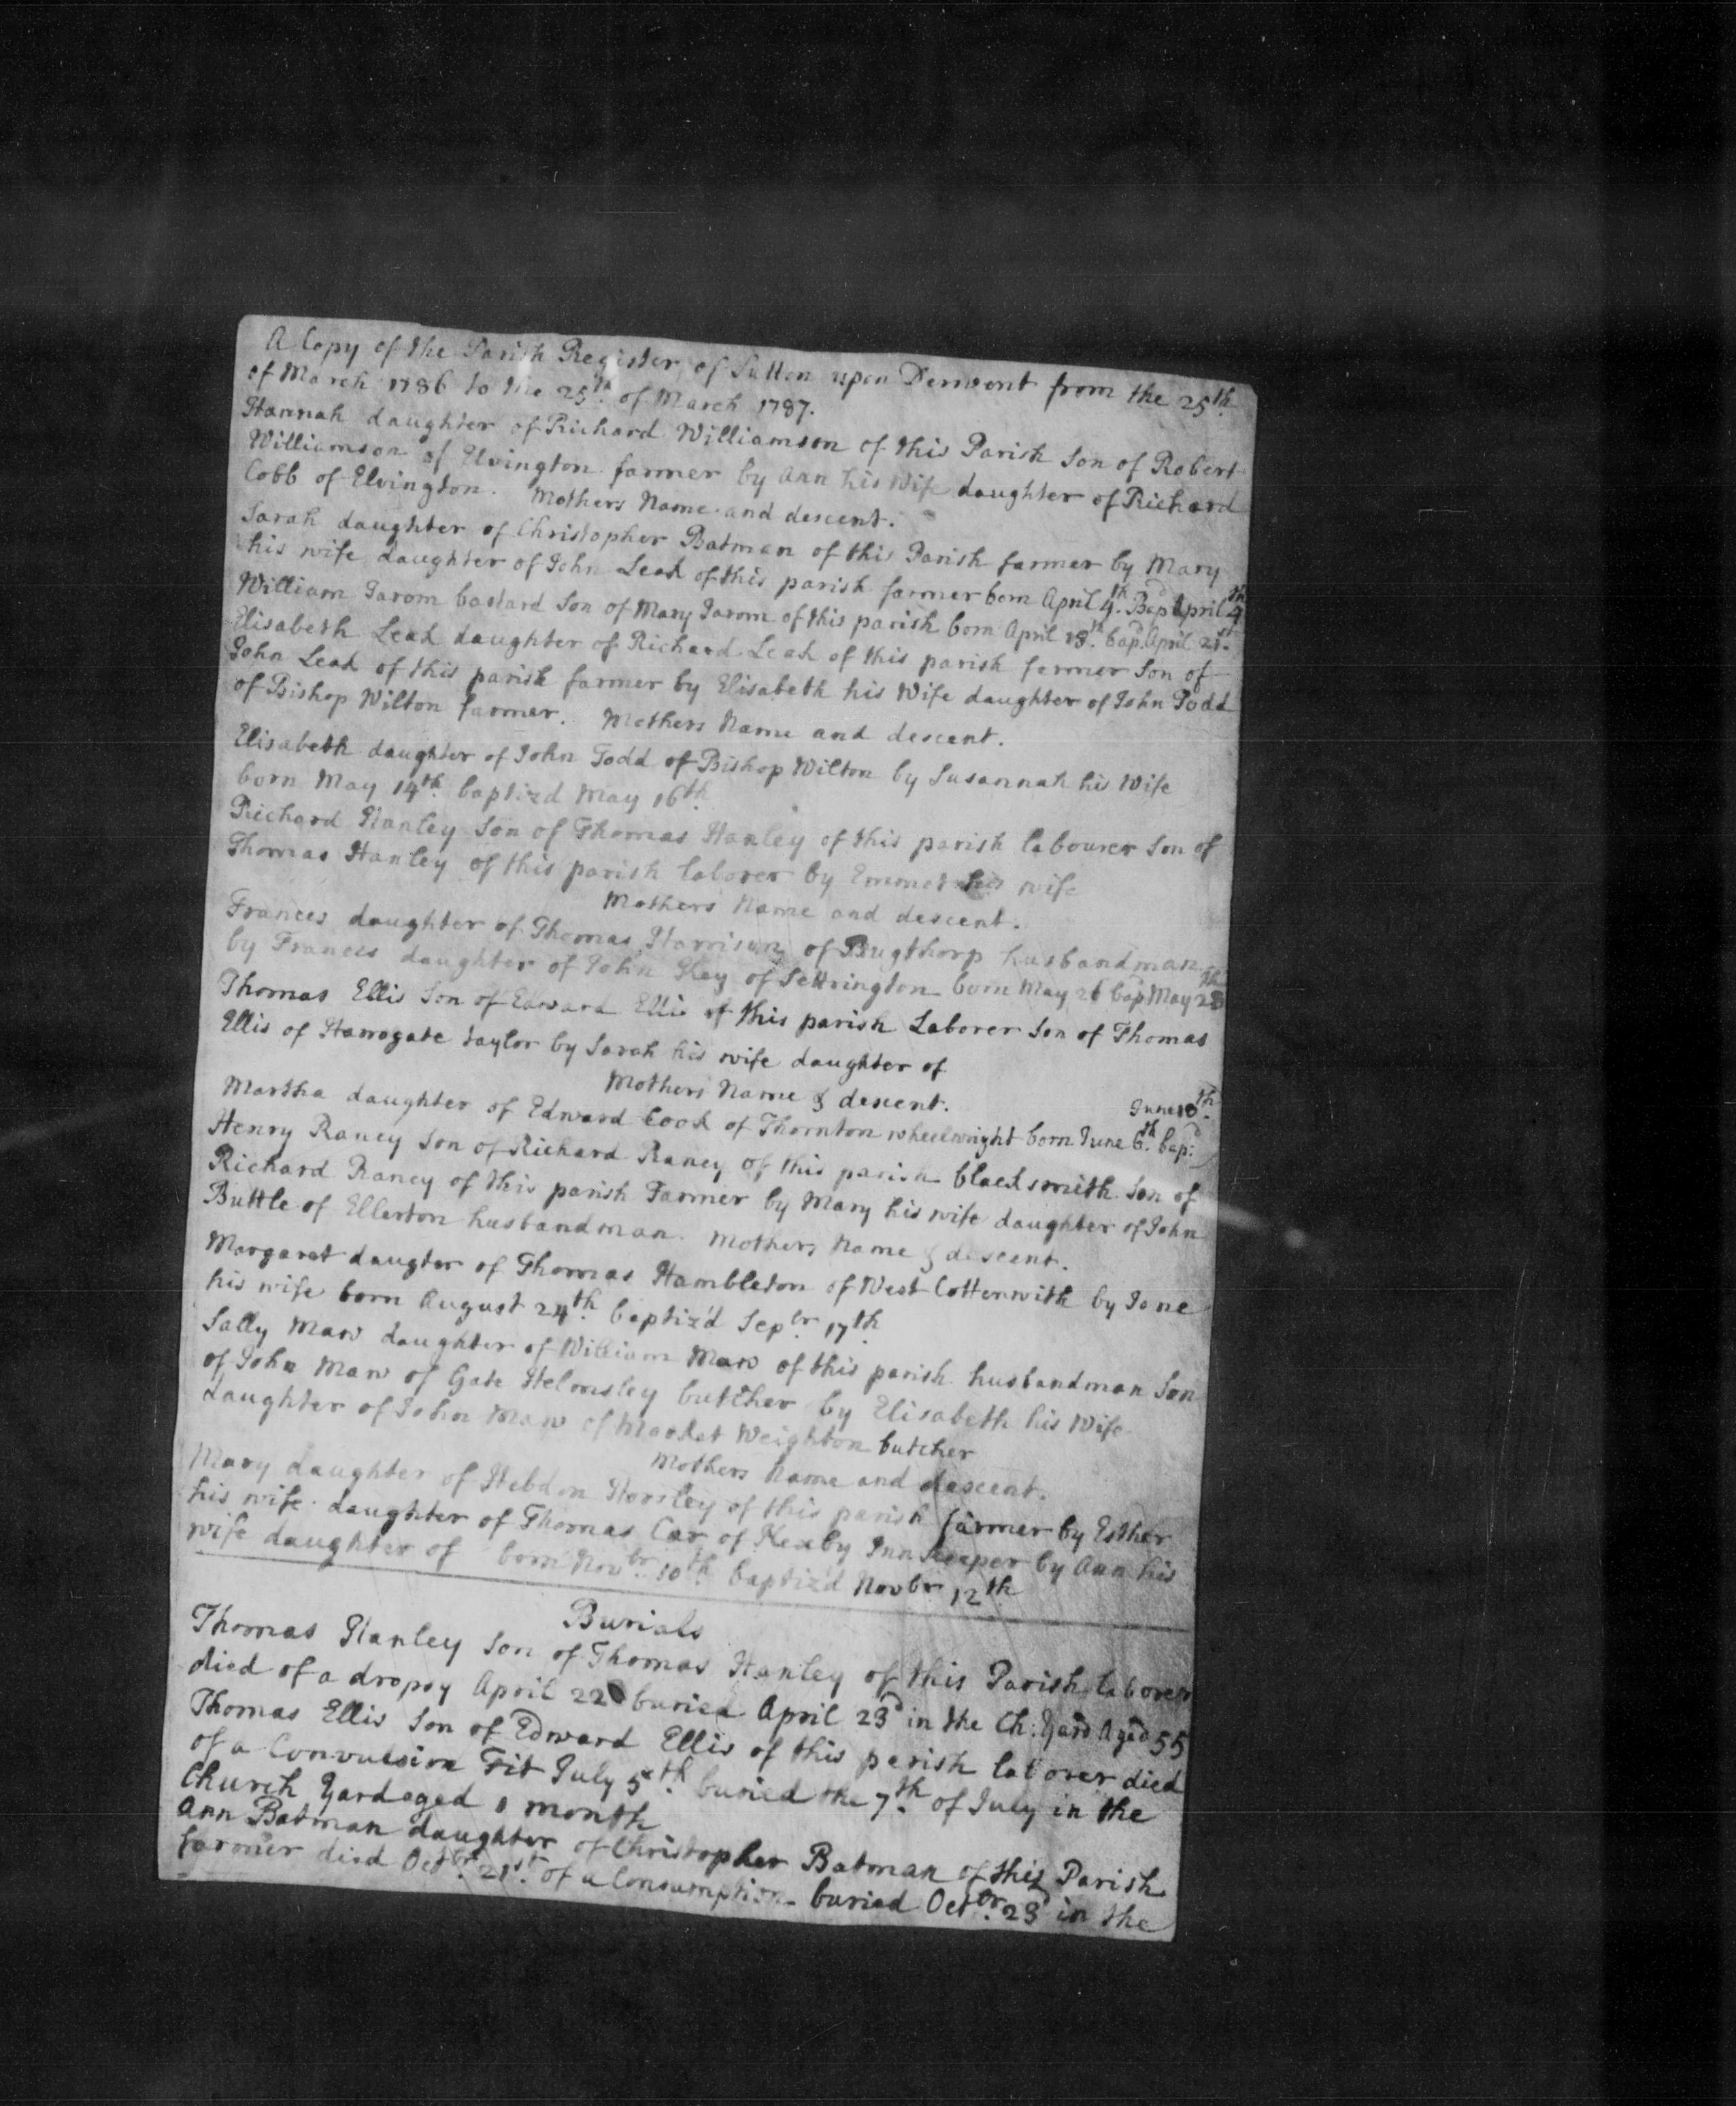 A Copy of the Parish Register of Sutton upon Derwent from the 25th
of March 1786 to the 25th of March 1787.
Hannah daughter of Richard Williamson of this Parish Son of Robert
Williamson of Elvington farmer by Ann his Wife daughter of Richard
Cobb of Elvington. Mothers Name and descent.
Sarah daughter of Christopher Batman of this Parish farmer by Mary
his wife daughter of John Leak of this parish farmer born April 4th. Bapd April 4th
William Jarom bastard Son of Mary Jarom of this parish born April 18th bapd April 21st
Elisabeth Leak daughter of Richard Leak of this parish farmer Son of
John Leak of this parish farmer by Elisabeth his Wife daughter of John Todd
of Bishop Wilton farmer. Mothers Name and descent.
Elisabeth daughter of John Todd of Bishop Wilton by Susannah his Wife
born May 14th baptizd May 16th
Richard Hanley Son of Thomas Hanley of this parish labourer Son of
Thomas Hanley of this parish laborer by his wife
Mothers Name and descent.
Frances daughter of Thomas Harrison of Bugthorp husbandman
by Frances daughter of John Key of Settrington born May 26 bapd May 28th
Thomas Ellis Son of Edward Ellis of this parish Laborer Son of Thomas
Ellis of Harrogate taylor by Sarah his wife daughter of
Mothers Name & descent.
June 8th.
Martha daughter of Edward Cook of Thornton wheelwright born June 6th. bapd:
Henry Raney Son of Richard Raney of this parish blacksmith Son of
Richard Raney of this parish Farmer by Mary his wife daughter of John
Buttle of Ellerton husbandman. Mothers Name & descent.
Margaret daugter of Thomas Hambleton of West Cottenwith by Jane
his wife born August 24th. baptiz'd Sepbr. 17th
Sally Maw daughter of William Maw of this parish husbandman Son
of John Maw of Gate Helmsley butcher by Elisabeth his Wife
daughter of John Maw of Market Weighton butcher
Mothers Name and descent.
Mary daughter of Hebdon Horsley of this parish farmer by Esther
his wife daughter of Thomas Car of Kexby Innkeeper by Ann his
wife daughter of born Novbr. 10th baptizd Novbr 12th
Burials
Thomas Hanley Son of Thomas Hanley of this Parish laborer
died of a dropsy April 22 buried April 23d in the Ch: Yard Aged 55
Thomas Ellis Son of Edward Ellis of this parish laborer died
of a Convulsive Fit July 5th. buried the 7th. of July in the
Church Yard aged 1 month
Ann Batman daughter of Christopher Batman of this Parish
farmer died Octbr. 21st. of a Consumption buried Octbr. 23d in the